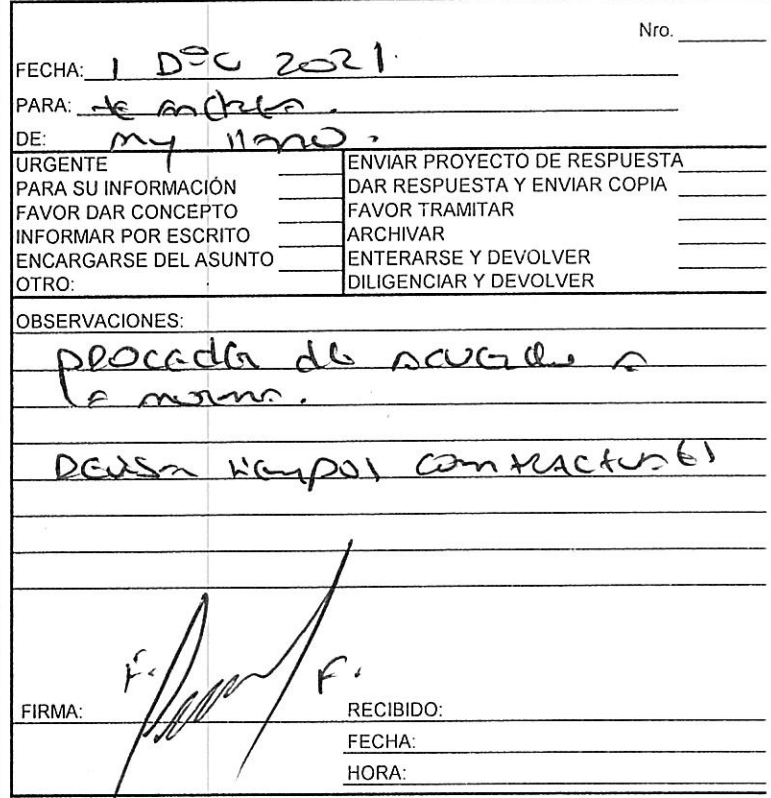 Nro.
FECHA: 1 Dic 2021.
PARA: te Andrea.
DE: my llano.
URGENTE
PARA SU INFORMACIÓN
FAVOR DAR CONCEPTO
INFORMAR POR ESCRITO
ENCARGARSE DEL ASUNTO
OTRO:
ENVIAR PROYECTO DE RESPUESTA
DAR RESPUESTA Y ENVIAR COPIA
FAVOR TRAMITAR
ARCHIVAR
ENTERARSE Y DEVOLVER
DILIGENCIAR Y DEVOLVER
OBSERVACIONES:
proceder de acuerdo a
la norma.
revisar tiempos contractuales
F. F.
FIRMA:
RECIBIDO:
FECHA:
HORA: